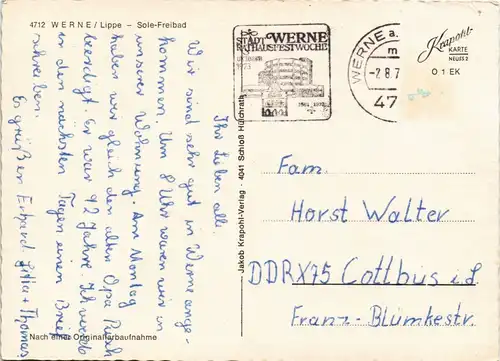 4712 WERNE / Lippe - Sole-Freibad
Ihr Lieben alle.
Wir sind sehr gut in Werne ange-
kommen. Um 8 Uhr waren wir in
unserer Wohnung. Am Montag
haben wir gleich den alten Opa
beerdigt. Er war 92 Jahre. Ich werde
in den nächsten Tagen einen Brief
schreiben.
Es grüßen Erhard, + Thomas
Nach einer Originalfarbaufnahme
Jakob Krapohl-Verlag · 4041 Schloß Hülchrath
STADT WERNE
RATHAUSFESTWOCHE
1973
WERNE a.
m
-2.8.7
47
Krapohl-
KARTE
NEUSS 2
O 1 EK
Fam.
Horst Walter
DDR X75 Cottbus i.d.
Franz-Blümkestr.